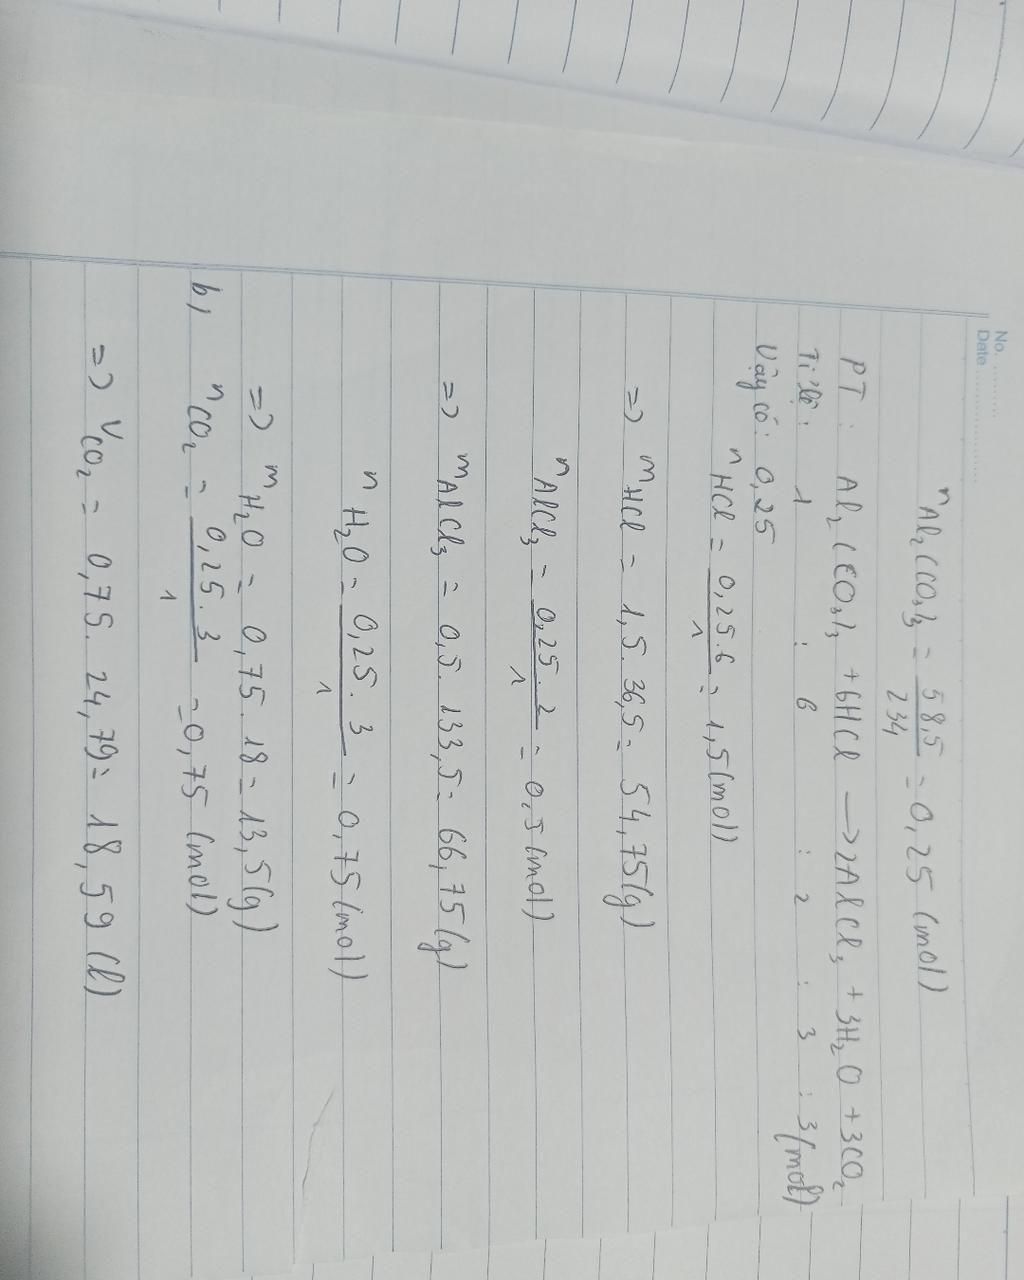 No. ............
Date ....................
nAl₂(CO₃)₃ = 58,5/234 = 0,25 (mol)
PT : Al₂(CO₃)₃ + 6HCl → 2AlCl₃ + 3H₂O + 3CO₂
Tỉ lệ: 1 : 6 : 2 : 3 : 3 (mol)
Vậy có: 0,25
nHCl = 0,25.6/1 = 1,5 (mol)
=> mHCl = 1,5. 36,5 = 54,75 (g)
nAlCl₃ = 0,25.2/1 = 0,5 (mol)
=> mAlCl₃ = 0,5. 133,5 = 66,75 (g)
nH₂O = 0,25.3/1 = 0,75 (mol)
=> mH₂O = 0,75. 18 = 13,5 (g)
b, nCO₂ = 0,25.3/1 = 0,75 (mol)
=> VCO₂ = 0,75. 24,79 = 18,59 (l)